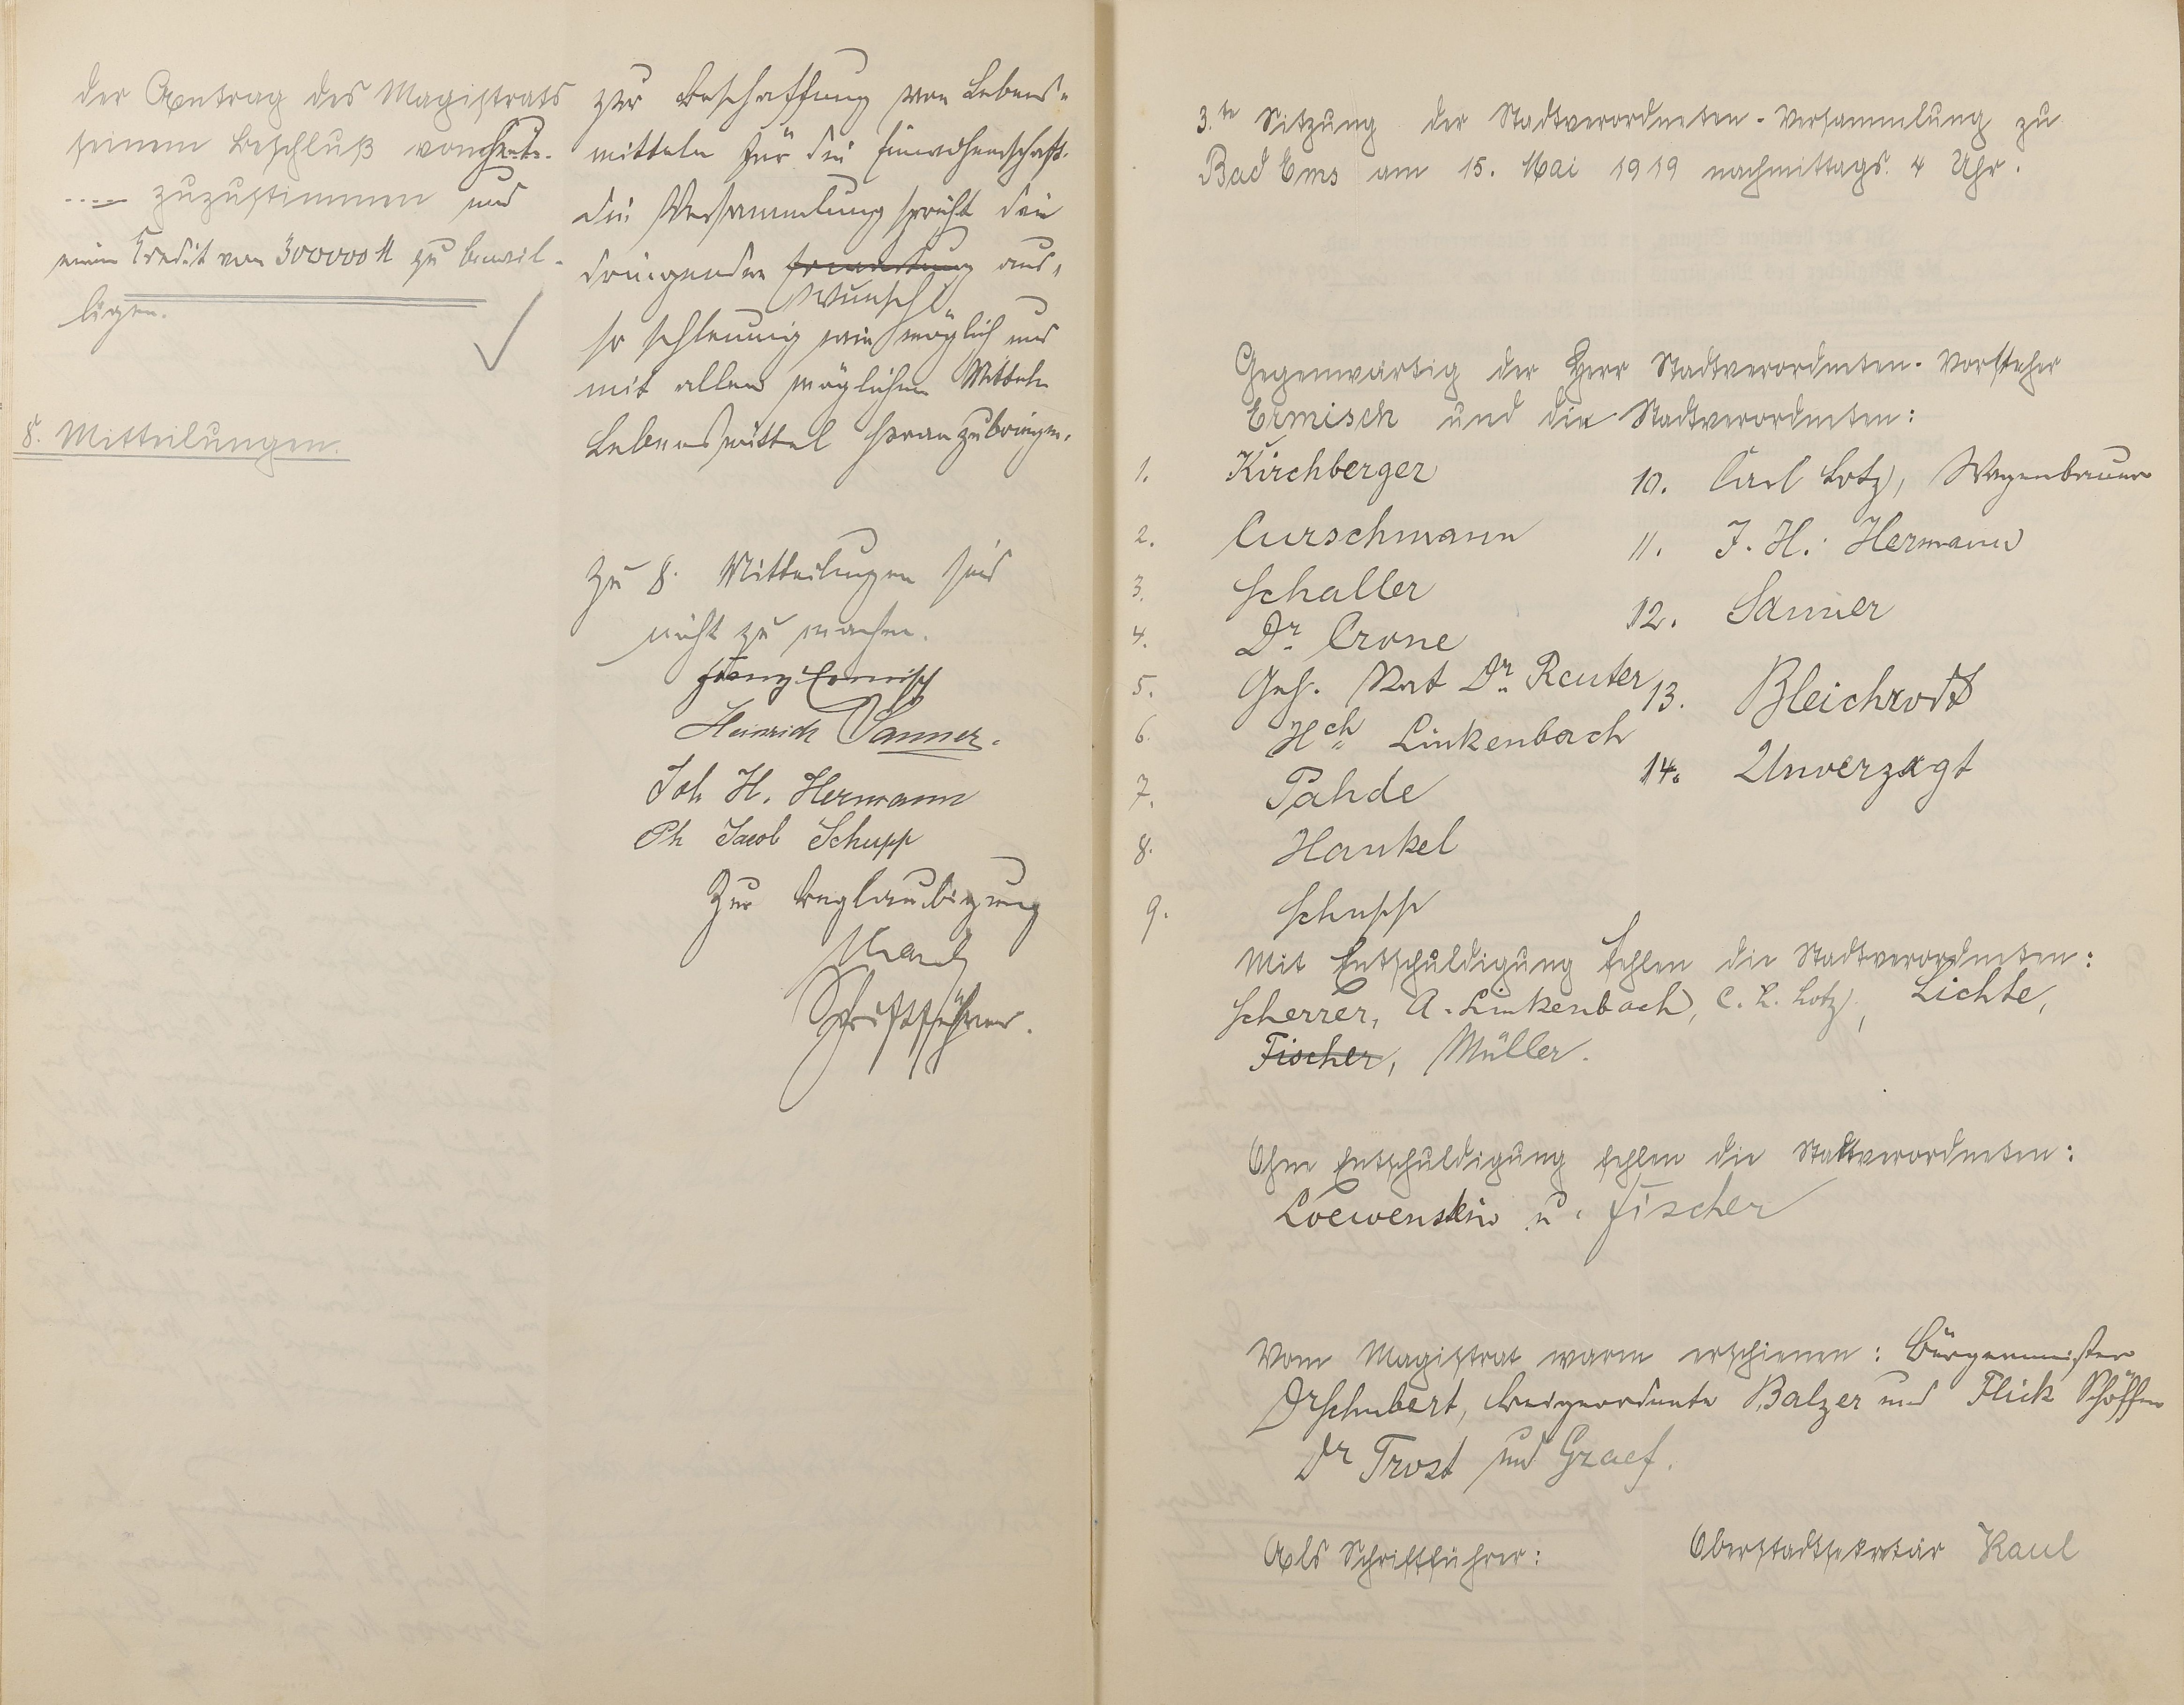 der Antrag des Magistrats
seinem Beschluß vom heute.
zuzustimmen und
einen Kredit von 300000 M zu bewil-
ligen.
8. Mitteilungen.
zur Beschaffung von Lebens-
mitteln für die Einwohnerschaft.
Die Versammlung spricht den
dringenden Erwartung aus,
Wunsch
so schleunig wie möglich und
mit allen möglichen Mitteln
Lebensmittel heranzubringen.
Zu 8. Mitteilungen sind
nicht zu machen.
Franz Ermisch
Heinrich Sanner.
Joh H. Hermann
Ph Jacob Schupp
Zur Beglaubigung
Schriftführer.
3.te Sitzung der Stadtverordneten-Versammlung zu
Bad Ems am 15. Mai 1919 nachmittags 4 Uhr.
Gegenwärtig der Herr Stadtverordneten-Vorsteher
Ermisch und die Stadtverordneten:
1. Kirchberger
2. Curschmann
3. Schaller
4. Dr. Crone
5. Geh. Rat Dr. Reuter
6. Hch Linkenbach
7. Pahde
8. Hankel
9. Schupp
10. Carl Lotz, Wagenbauer
11. J. H. Hermann
12. Sanner
13. Bleichrodt
14. Unverzagt
Mit Entschuldigung fehlen die Stadtverordneten:
Scherrer, A. Linkenbach, C. L. Lotz, Lichte,
Fischer, Müller.
Ohne Entschuldigung fehlen die Stadtverordneten:
Loewenstein u. Fischer
Vom Magistrat waren erschienen: Bürgermeister
Dr Schubert, Beigeordnete Balzer und Flick Schöffen
Dr Trost und Graef.
Als Schriftführer: Oberstadtsekretär Kaul